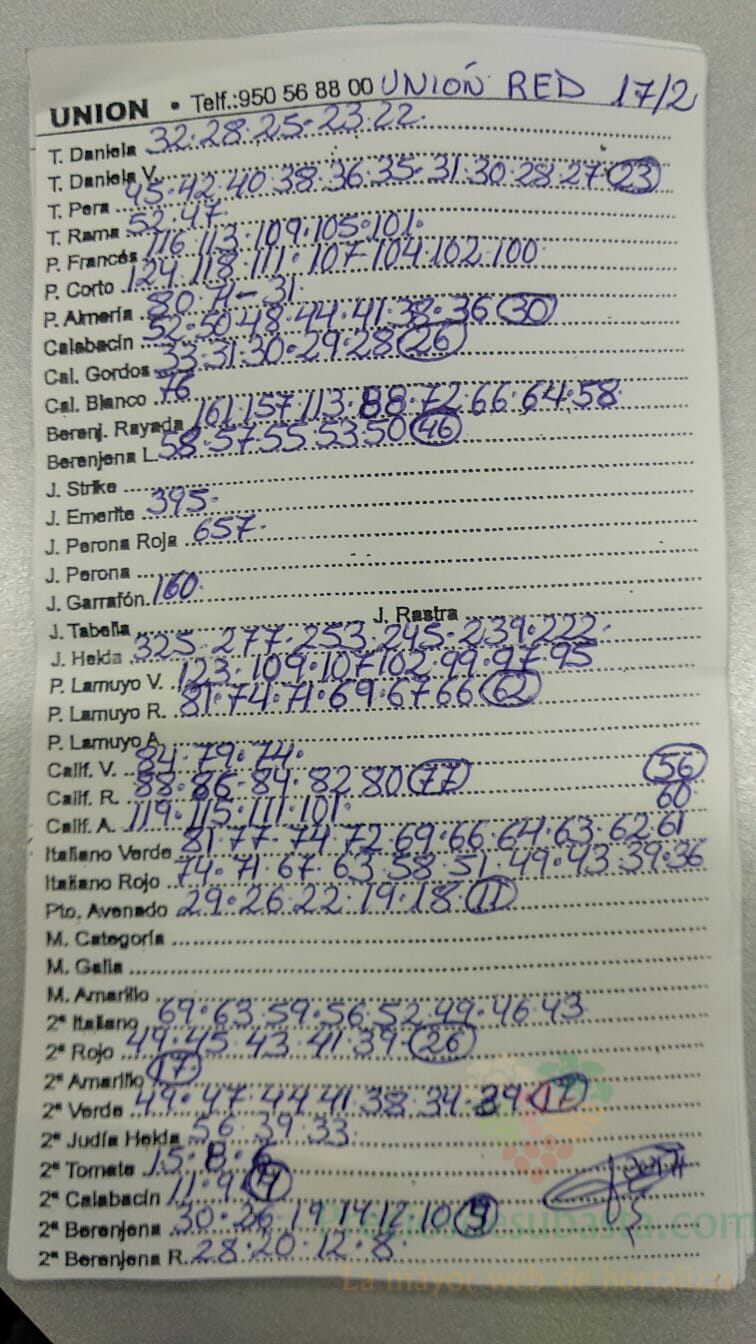 UNION • Telf.:950 56 88 00 UNIÓN RED 17/2
T. Daniela 32·28·25·23·22·
T. Daniela V.
T. Pera 45·42·40·38·36·35·31·30·28·27 23
T. Rama 52·47·
P. Francés 116·113·109·105·101·
P. Corto 124·118·111·107·104·102·100
P. Almería 80·71-31·
Calabacín 52·50·48·44·41·38·36 30
Cal. Gordos 33·31·30·29·28 26
Cal. Blanco 76
Berenj. Rayada 161·157·113·88·72·66·64·58·
Berenjena L. 58·57·55·53·50 46
J. Strike
J. Emerite 395·
J. Perona Roja 657·
J. Perona
J. Garrafón 160·
J. Tabella J. Rastra
J. Helda 325·277·253·245·239·222·
P. Lamuyo V. 123·109·107·102·99·97·95
P. Lamuyo R. 81·74·71·69·67·66 62
P. Lamuyo A.
Calif. V. 84·79·74· 56
Calif. R. 88·86·84·82·80 77 60
Calif. A. 119·115·111·101·
Italiano Verde 81·77·74·72·69·66·64·63·62·61
Italiano Rojo 74·71·67·63·58·51·49·43·39·36
Pto. Avenado 29·26·22·19·18· 11
M. Categoría
M. Galia
M. Amarillo
2ª Italiano 69·63·59·56·52·49·46·43
2ª Rojo 49·45·43·41·39· 26
2ª Amarillo 17
2ª Verde 49·47·44·41·38·34·39 17
2ª Judía Helda 56·39·33·
2ª Tomate 15·8·6
2ª Calabacín 11·9 4
2ª Berenjena 30·26·19·14·12·10 9
2ª Berenjena R. 28·20·12·8·
Preciosdesubasta.com
La mayor web de hortalizas